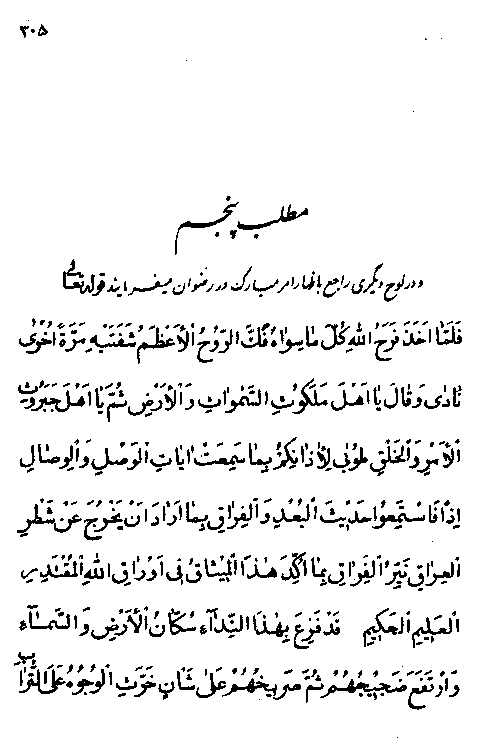 ۳۰۵
مطلب پنجم
و در لوح دیگری راجع باظهار امر مبارک در رضوان میفرمایند قوله تعالی
فَلَمَّا اَخَذَ فَرَحُ اللهِ كُلَّ مَا سِوَاهُ فَكَّ الرُّوْحُ الْأَعْظَمُ شَفَتَيْهِ مَرَّةً اُخْرٰی
نَادٰی وَ قَالَ يَا اَهْلَ مَلَكُوتِ السَّمٰوَاتِ وَ الْأَرْضِ ثُمَّ يَا اَهْلَ جَبَرُوتِ
الْأَمْرِ وَ الْخَلْقِ طُوبٰی لِاٰذَانِكُمْ بِمَا سَمِعَتْ اٰيَاتِ الْوَصْلِ وَ الْوِصَالِ
اِذًا فَاسْتَمِعُوا حَدِيثَ الْبُعْدِ وَ الْفِرَاقِ بِمَا اَرَادَ اَنْ يَخْرُجَ عَنْ شَطْرِ
الْعِرَاقِ نَيِّرُ الْفِرَاقِ بِمَا اَكَّدَ هٰذَا الْمِيثَاقُ فِی اَوْرَاقِ اللهِ الْمُقْتَدِرِ
الْعَلِيمِ الْحَكِيمِ قَدْ فَزِعَ بِهٰذَا النِّدَآءِ سُكَّانُ الْأَرْضِ وَ السَّمَآءِ
وَ ارْتَفَعَ ضَجِيجُهُمْ ثُمَّ صَرِيخُهُمْ عَلٰی شَاْنٍ خَرَّتِ الْوُجُوهُ عَلَی التُّرَابِ